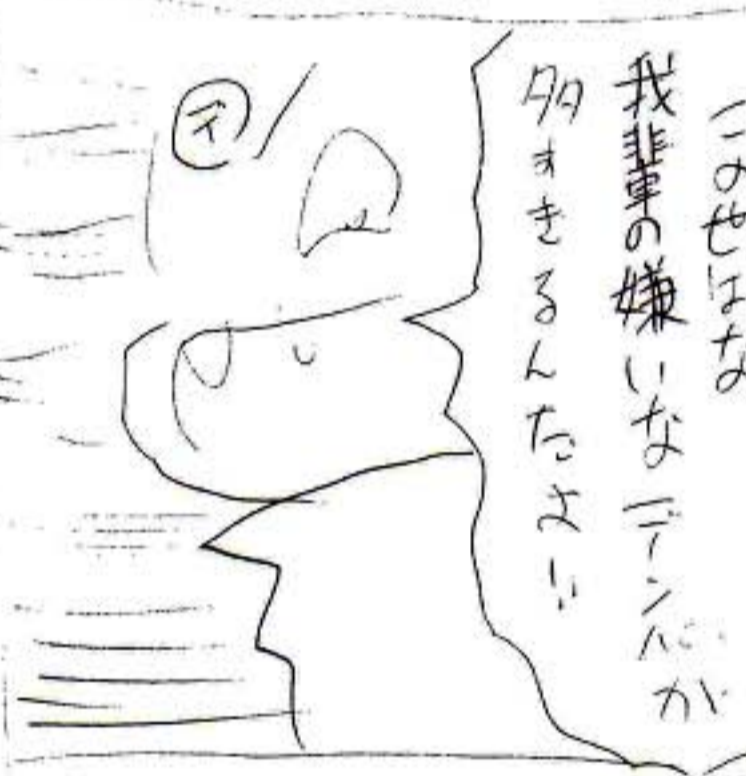 この世はな
我輩の嫌いなデンパが
多すきるんだよ!!
デ